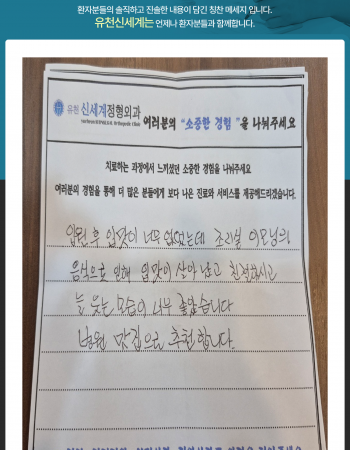 환자분들의 솔직하고 진솔한 내용이 담긴 칭찬 메세지 입니다.
유천신세계는 언제나 환자분들과 함께합니다.
유천 신세계정형외과
여러분의 "소중한 경험"을 나눠주세요
치료하는 과정에서 느끼셨던 소중한 경험을 나눠주세요
여러분의 경험을 통해 더 많은 분들에게 보다 나은 진료와 서비스를 제공해드리겠습니다.
입원 후 입맛이 너무 없었는데 조리실 이모님의
음식으로 인해 입맛이 살아났고 친절하시고
늘 웃는 모습이 너무 좋았습니다
병원 맛집으로 추천합니다.